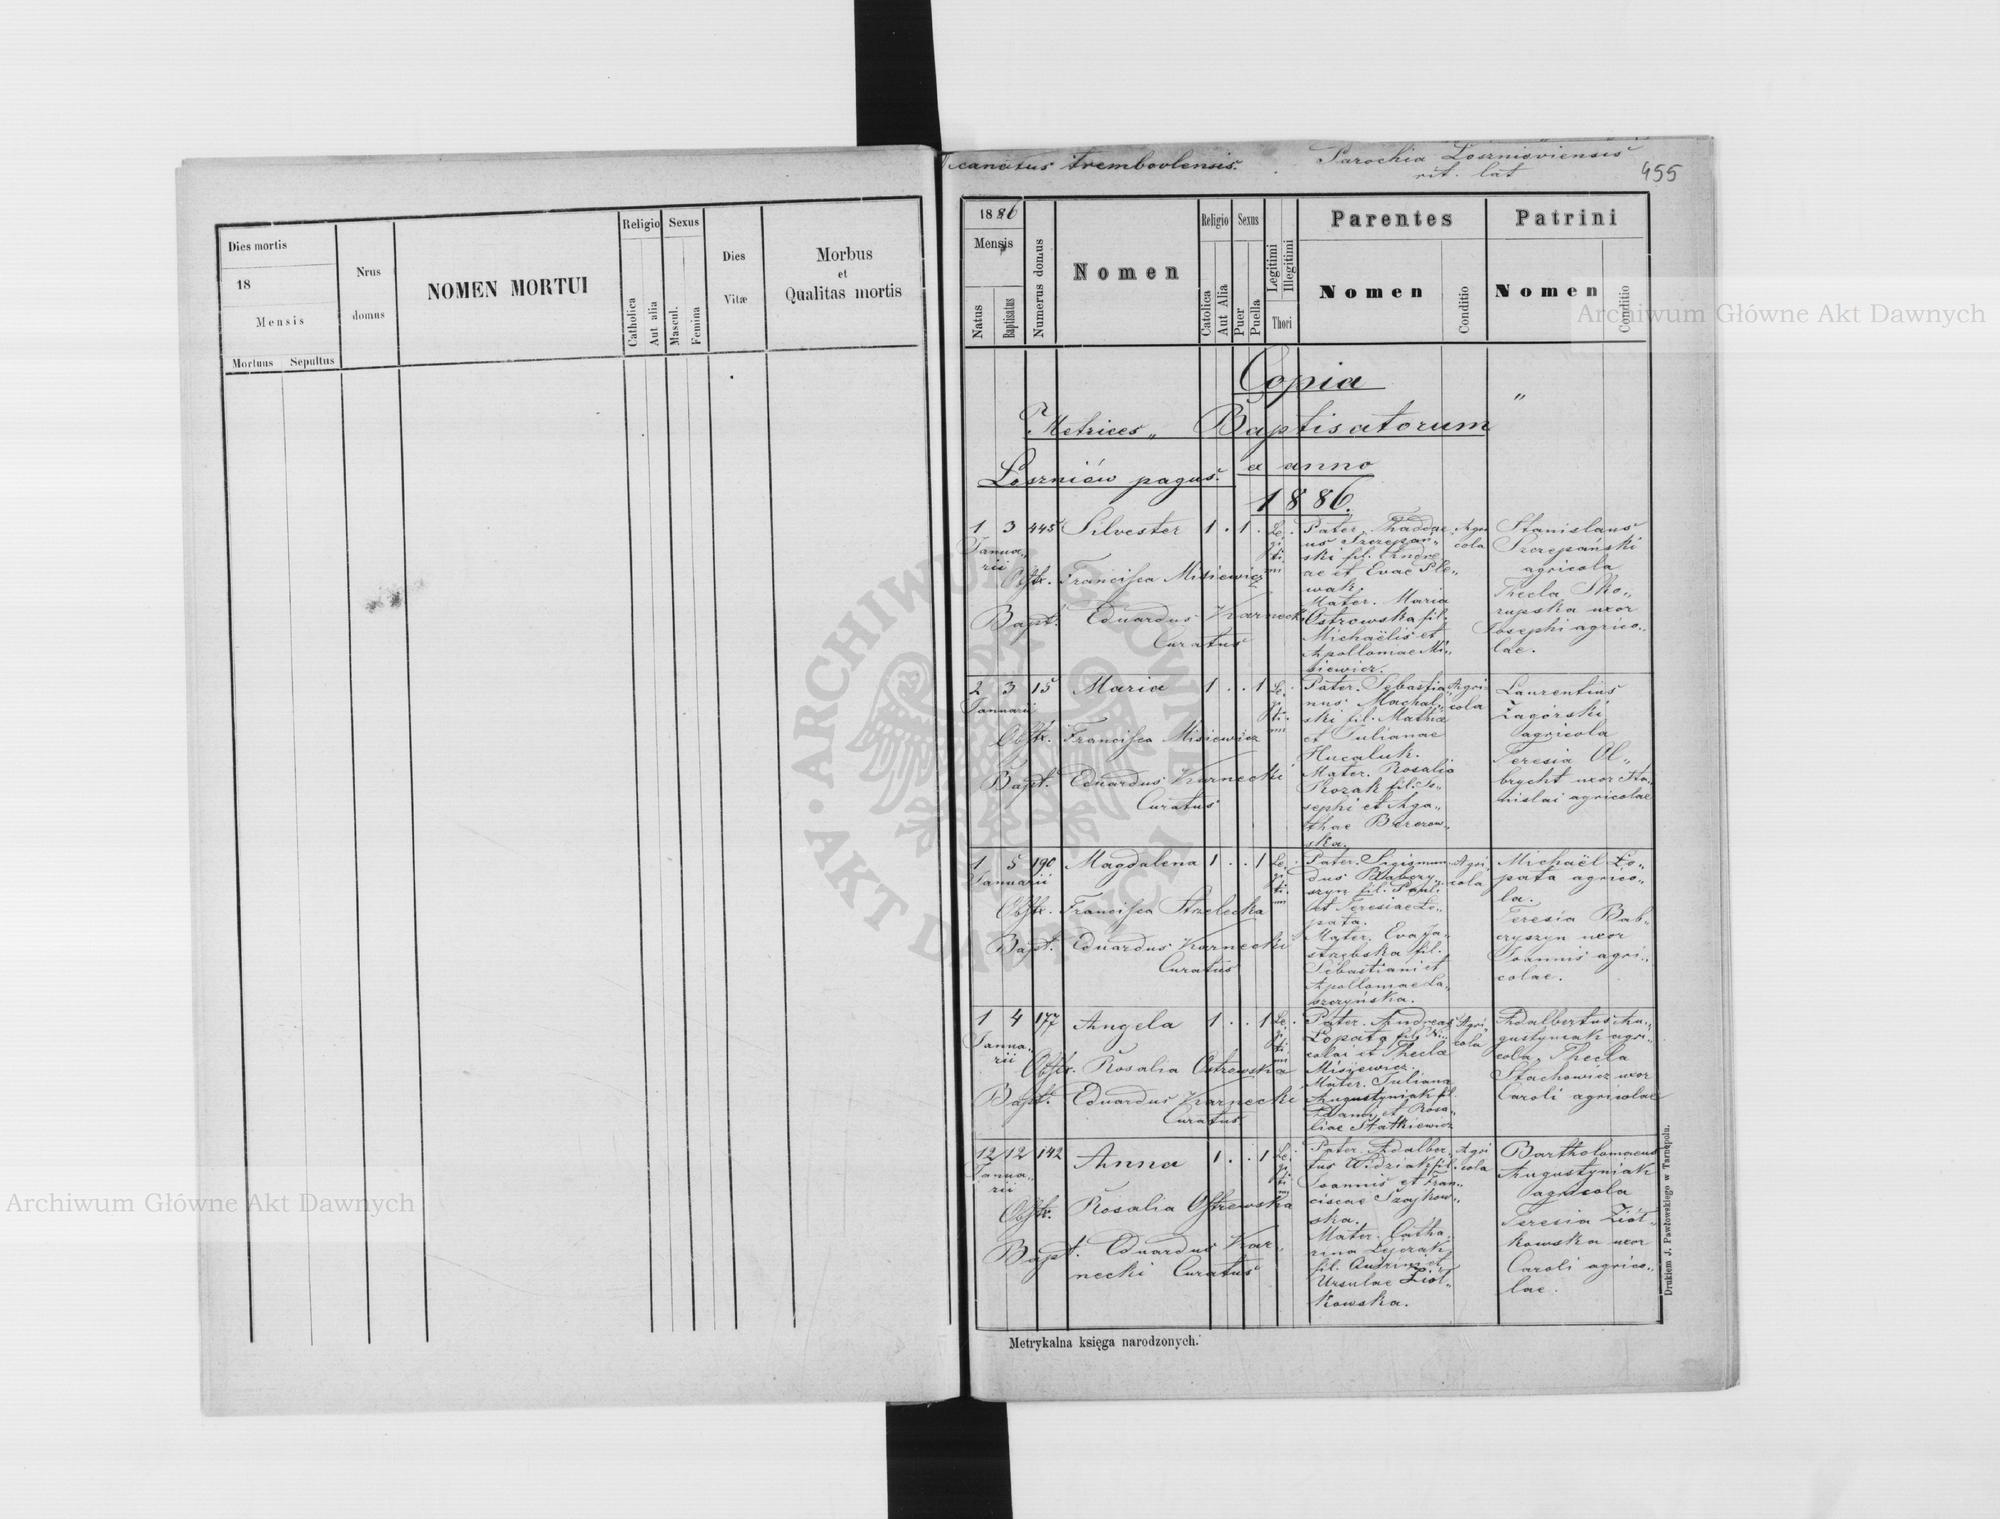 Dies mortis
18
Mensis
Mortuus Sepultus
Nrus
domus
NOMEN MORTUI
Religio
Catholica
Aut alia
Sexus
Mascul.
Femina
Dies
Vitæ
Morbus
et
Qualitas mortis
canatus trembovlensis.
Parochia Losznioviensis
rit. lat
455
1886
Mensis
Natus
Baptisatus
Numerus domus
Nomen
Religio
Catolica
Aut Alia
Sexus
Puer
Puella
Legitimi
Illegitimi
Thori
Parentes
Nomen
Conditio
Patrini
Nomen
Conditio
Copia
Metrices „ Baptisatorum "
Loszniów pagus. ex anno
1886.
1 3 445 Silvester 1 . 1 .
Janua„
rii
Obstr. Francisca Misiewicz
Bapt. Eduardus Karnecki
Curatus
Le„
gi„
ti„
mi
Pater. Thaddae„
us Szczepań„
ski fil. Andre„
ae et Evae Ple„
wak.
Mater. Maria
Ostrowska fil.
Michaëlis et
Apolloniae Mi„
siewicz.
Agri
cola
Stanislaus
Szczepański
agricola
Thecla Sko„
rupska uxor
Josephi agrico„
lae.
2 3 15 Maria 1 . . 1
Januarii
Obstr. Francisca Misiewicz
Bapt. Eduardus Karnecki
Curatus
Le„
gi„
ti„
mi
Pater. Sebastia„
nus Machal„
ski fil. Mathiae
et Julianae
Hucaluk.
Mater. Rosalia
Kozak fil. Jo„
sephi et Aga„
thae Berezow„
ska.
Agri„
cola
Laurentius
Zagórski
agricola
Teresia Ol„
brycht uxor Sta„
nislai agricolae
1 5 190 Magdalena 1 . . 1
Januarii
Obstr. Francisca Strzelecka
Bapt. Eduardus Karnecki
Curatus
Le„
gi„
ti„
mi
Pater. Sigismun„
dus Babczy„
szyn fil. Pauli
et Teresiae Ło„
pata.
Mater. Eva Ja„
strzębska fil.
Sebastiani et
Apolloniae La„
szczyńska.
Agri„
cola
Michaël Ło„
pata agrico„
la.
Teresia Bab„
czyszyn uxor
Joannis agri„
colae.
1 4 177 Angela 1 . . 1
Janua„
rii
Obstr. Rosalia Ostrowska
Bapt. Eduardus Karnecki
Curatus
Le„
gi„
ti„
mi
Pater. Andreas
Łopata fil. Ni„
colai et Thecla
Misijewicz.
Mater. Juliana
Augustyniak fil.
Adami et Rosa„
liae Statkiewicz
Agri„
cola
Adalbertus Au„
gustyniak agri„
cola, Thecla
Stachowicz uxor
Caroli agricolae
12 12 142 Anna 1 . . 1
Janua„
rii
Obstr. Rosalia Ostrowska
Bapt. Eduardus Kar„
necki Curatus
Le„
gi„
ti„
mi
Pater. Adalber„
tus Widziak fil.
Joannis et Fran„
ciscae Szajkow„
ska.
Mater. Catha„
rina
fil. Andreae et
Ursulae Ziół„
kowska.
Agri„
cola
Bartholomaeus
Augustyniak
agricola
Teresia Ziół„
kowska uxor
Caroli agrico„
lae.
Metrykalna księga narodzonych.
Drukiem J. Pawłowskiego w Tarnopolu.
ARCHIWUM GŁÓWNE • AKT DAWNYCH
Archiwum Główne Akt Dawnych
Archiwum Główne Akt Dawnych